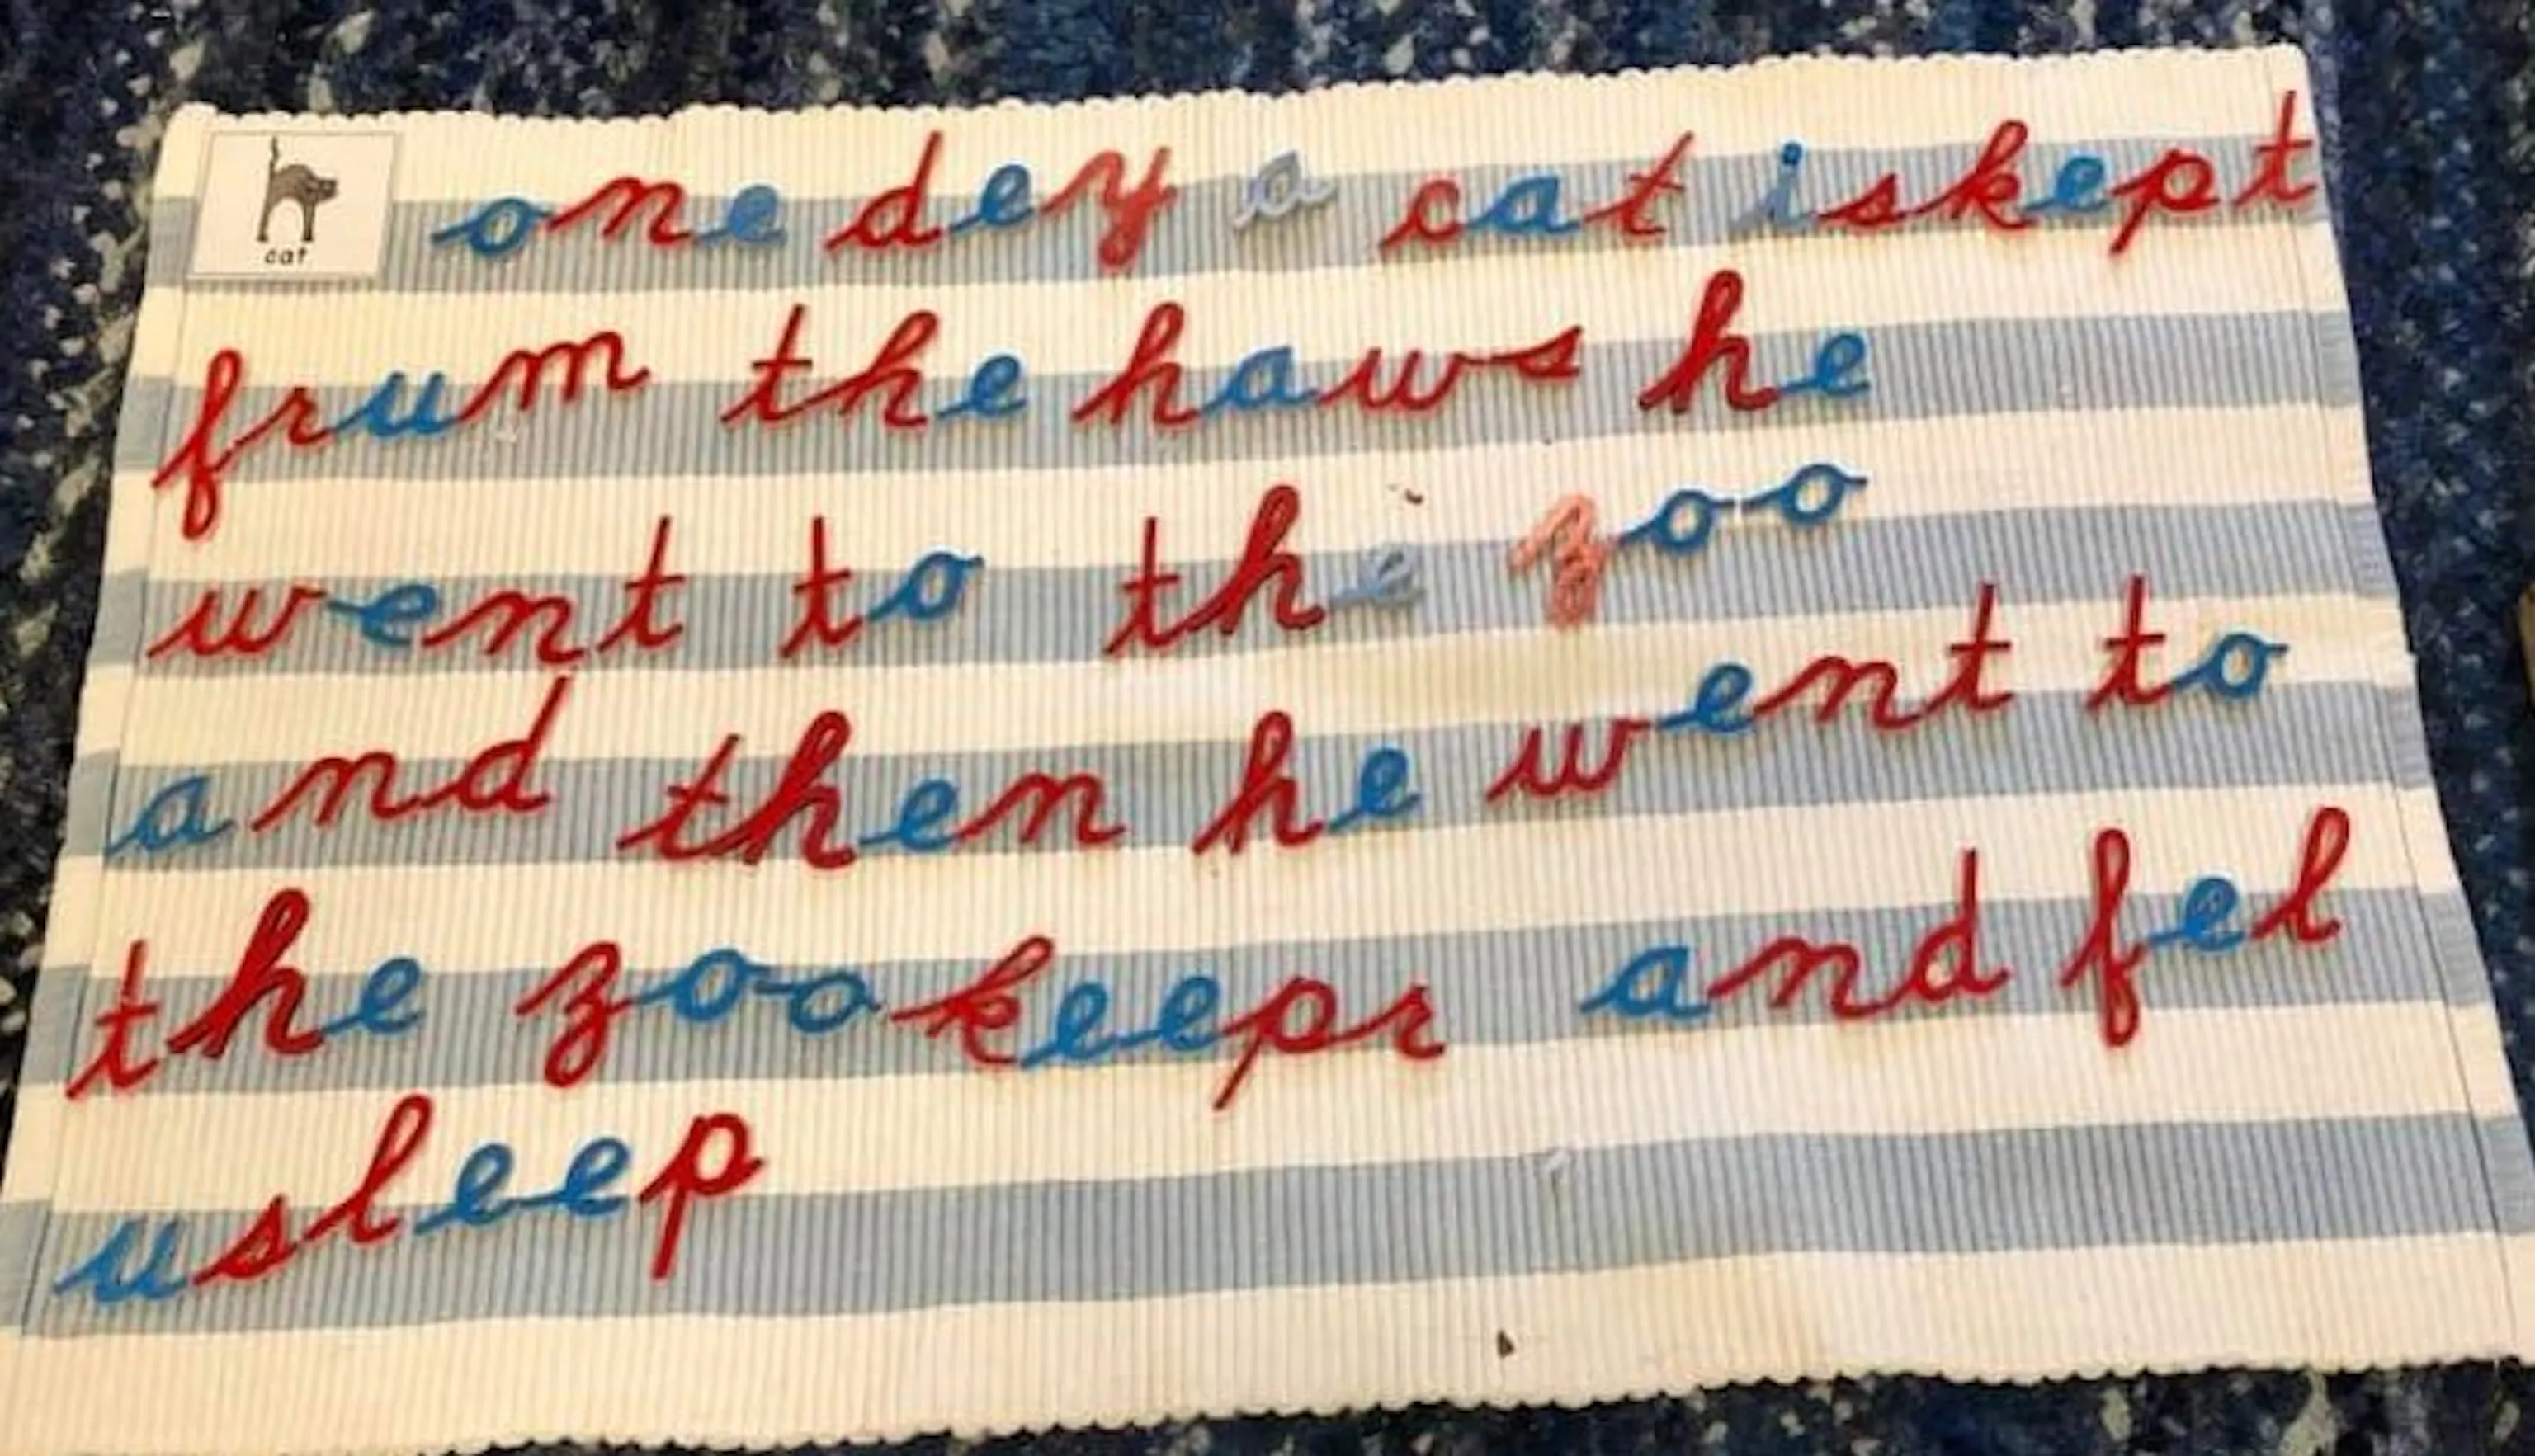 cat
one dey a cat iskept
frum the haws he
went to the zoo
and then he went to
the zookeepr and fel
usleep